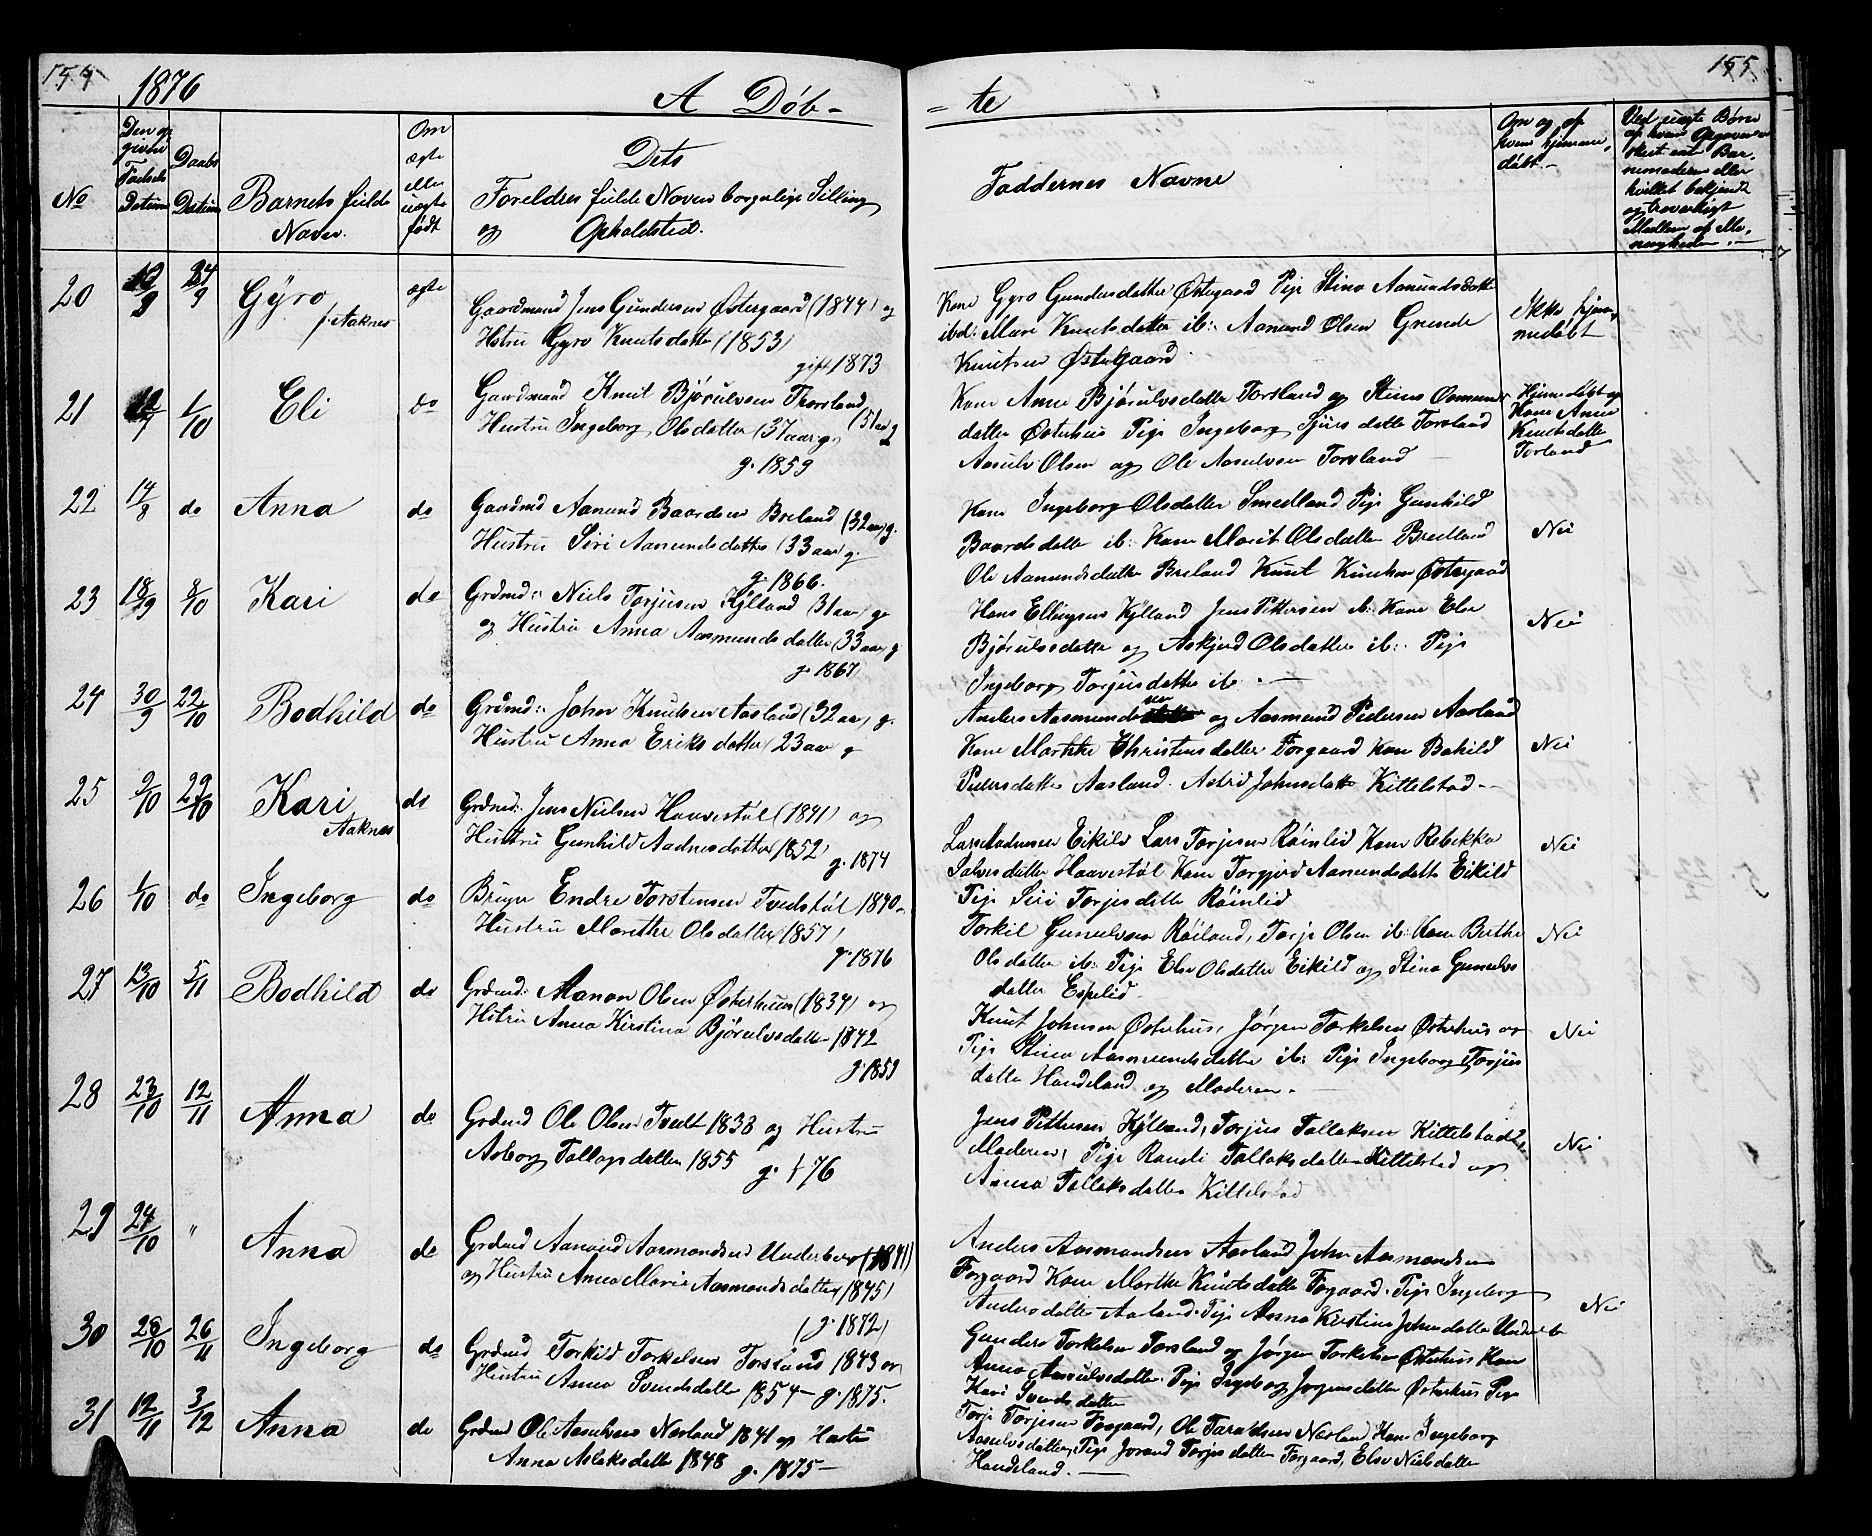 154
1876
A Døb-
No
Den op
given
Fødsels
Datum
Daabs
Datum
Barnets fulde
Navn.
Om
ægte
eller
uægte
født
Dets
Forældres fulde Navne borgerlige Stilling
og Opholdsted.
20 9 24/9 Gyro ægte
f. Aaknes
Gaardmand Jens Gundersen Østergaard (1844) og
Hstru Gyro Knutsdatter (1853)
gift 1873
21 1/10 Eli do
Gaardmand Knut Bjørulvsen Thorsland
Hustru Ingeborg Olsdatter (37 aar g.
g. 1859
22 14/8 do Anna do
Gaardmd Aanund Baardsen Breland (32 aar g.
Hustru Siri Aanundsdatter (33 aar g.
g. 1866.
23 18/9 8/10 Kari do
Grdmd: Niels Torjusen Kylland (31 aar) g.
og Hustru Anna Aasmundsdatter (33 aar g
g. 1867)
24 30/9 22/10 Bodhild do
Grdmd: John Knudsen Aasland (32 aar) g.
Hustru Anna Eriksdatter (23 aar g
25 9/10 29/10 Kari do
Aaknes
Grdmd: Jens Nielsen Haavestøl (1841) og
Hustru Gunhild Aadnesdatter (1852)
g. 1874
26 1/10 do Ingeborg do
Endre Torstensen Tvedstøl 1840
Hustru Marethe Olsdatter (1857)
g. 1876
27 13/10 5/11 Bodhild do
Grdmd: Aanon Olsen Østerhuus (1834) og
Hstru Anna Kirstina Bjørulvsdatter 1842
g. 1859
28 23/10 12/11 Anna do
Grdmd Ole Olsen Tvedt 1838 og Hustru
Asborg Tallagsdatter 1855 g. 76
29 24/10 " Anna do
Grdmd Aanund Aasmundsen Underberg (1841)
og Hustru Anna Marie Aasmundsdatter (1845)
(g. 1872)
30 28/10 26/11 Ingeborg do
Grdmd Torkild Torkelsen Torsland 1843 og
Hustru Anna Svendsdatter 1854 - g. 1875.
31 12/11 3/12 Anna do
Grdmd Ole Aasulvsen Nesland 1841 og Hustru
Anna Aslaksdatter 1848 g. 1875 -
155.
- te
Faddernes Navne
Om og af
hvem hjemme
døbt. -
Ved uægte Børn
Kone Gyro Gundersdatter Østergaard Pige Stina Aanundsdatter
ibd: Mari Knutsdatter ib: Aanund Olsen Gunder
Knutsen Østergaard.
Ikke hjem
medøbt
Kone Anne Bjørulvsdatter Torsland og Stine Osmunds
datter Østerhus Pige Ingeborg Sjursdatter Torsland
Aasulv Olsen og Ole Aasulvsen Torsland
Hjemmedøbt af
Kone Anne
Knutsdatter
Torsland
Kone Ingeborg Olsdatter Smedland Pige Gunhild
Baardsdatter ib: Kone Marit Olsdatter Breiland
Ole Aanundsdatter Breland Knut Knutsen Østergaard
Nei
Hans Ellingsen Kylland Jens Pettersen ib: Kone Else
Bjørulvsdatter og Askjerd Olsdatter ib: Pige
Ingeborg Torjusdatter ib. -
Nei
Anders Aasmundsen og Aasmund Pedersen Aasland
Kone Marthe Christensdatter Forgaard Kone Bohild
Pedersdatter Aasland. Astrid Johnsdatter Kittelstad. -
Nei
Lars Eikild Lars Torjesen Røinlid Kone Rebekka
Salvesdatter Haavestøl Kone Torgjerd Aanundsdatter Eikild
Pige Siri Torjesdatter Røinlid
Nei
Torkil Gunulvsen Røiland, Torje Olsen ib: Kone Berthe
Olsdatter ib: Pige Else Olsdatter Eikild og Stina Gunulvs
datter Espelid.
Nei
Knut Johnsen Østerhus, Jørgen Torkelsen Østerhus og
Pige Stina Aasmundsdatter ib: Pige Ingeborg Torjus
datter Handeland og Moderen. -
Nei
Jens Pettersen Kylland, Torjus Tallaksen Kittelstad,
Moderen, Pige Randi Tallaksdatter Kittelstad og
Anna Tallaksdatter Kittelstad
Nei
Anders Aasmundsen Aasland John Aasmundsen
Forgaard Kone Marthe Knutsdatter Forgaard. Pige Ingeborg
Andersdatter Aasland. Pige Anna Kirstine Johnsdatter Underb
Nei
Gunder Torkelsen Torsland og Jørgen Torkelsen Østerhus Kone
Anna Aasulvsdatter. Pige Ingeborg Jørgensdatter Østerhus Pige
Kari Svendsdatter
Torje Torjesen Forgaard, Ole Taraldsen Nesland Kone Ingeborg
Aasulvsdatter, Pige Jorand Torjesdatter Forgaard, Else Nielsdatter
Handeland. -